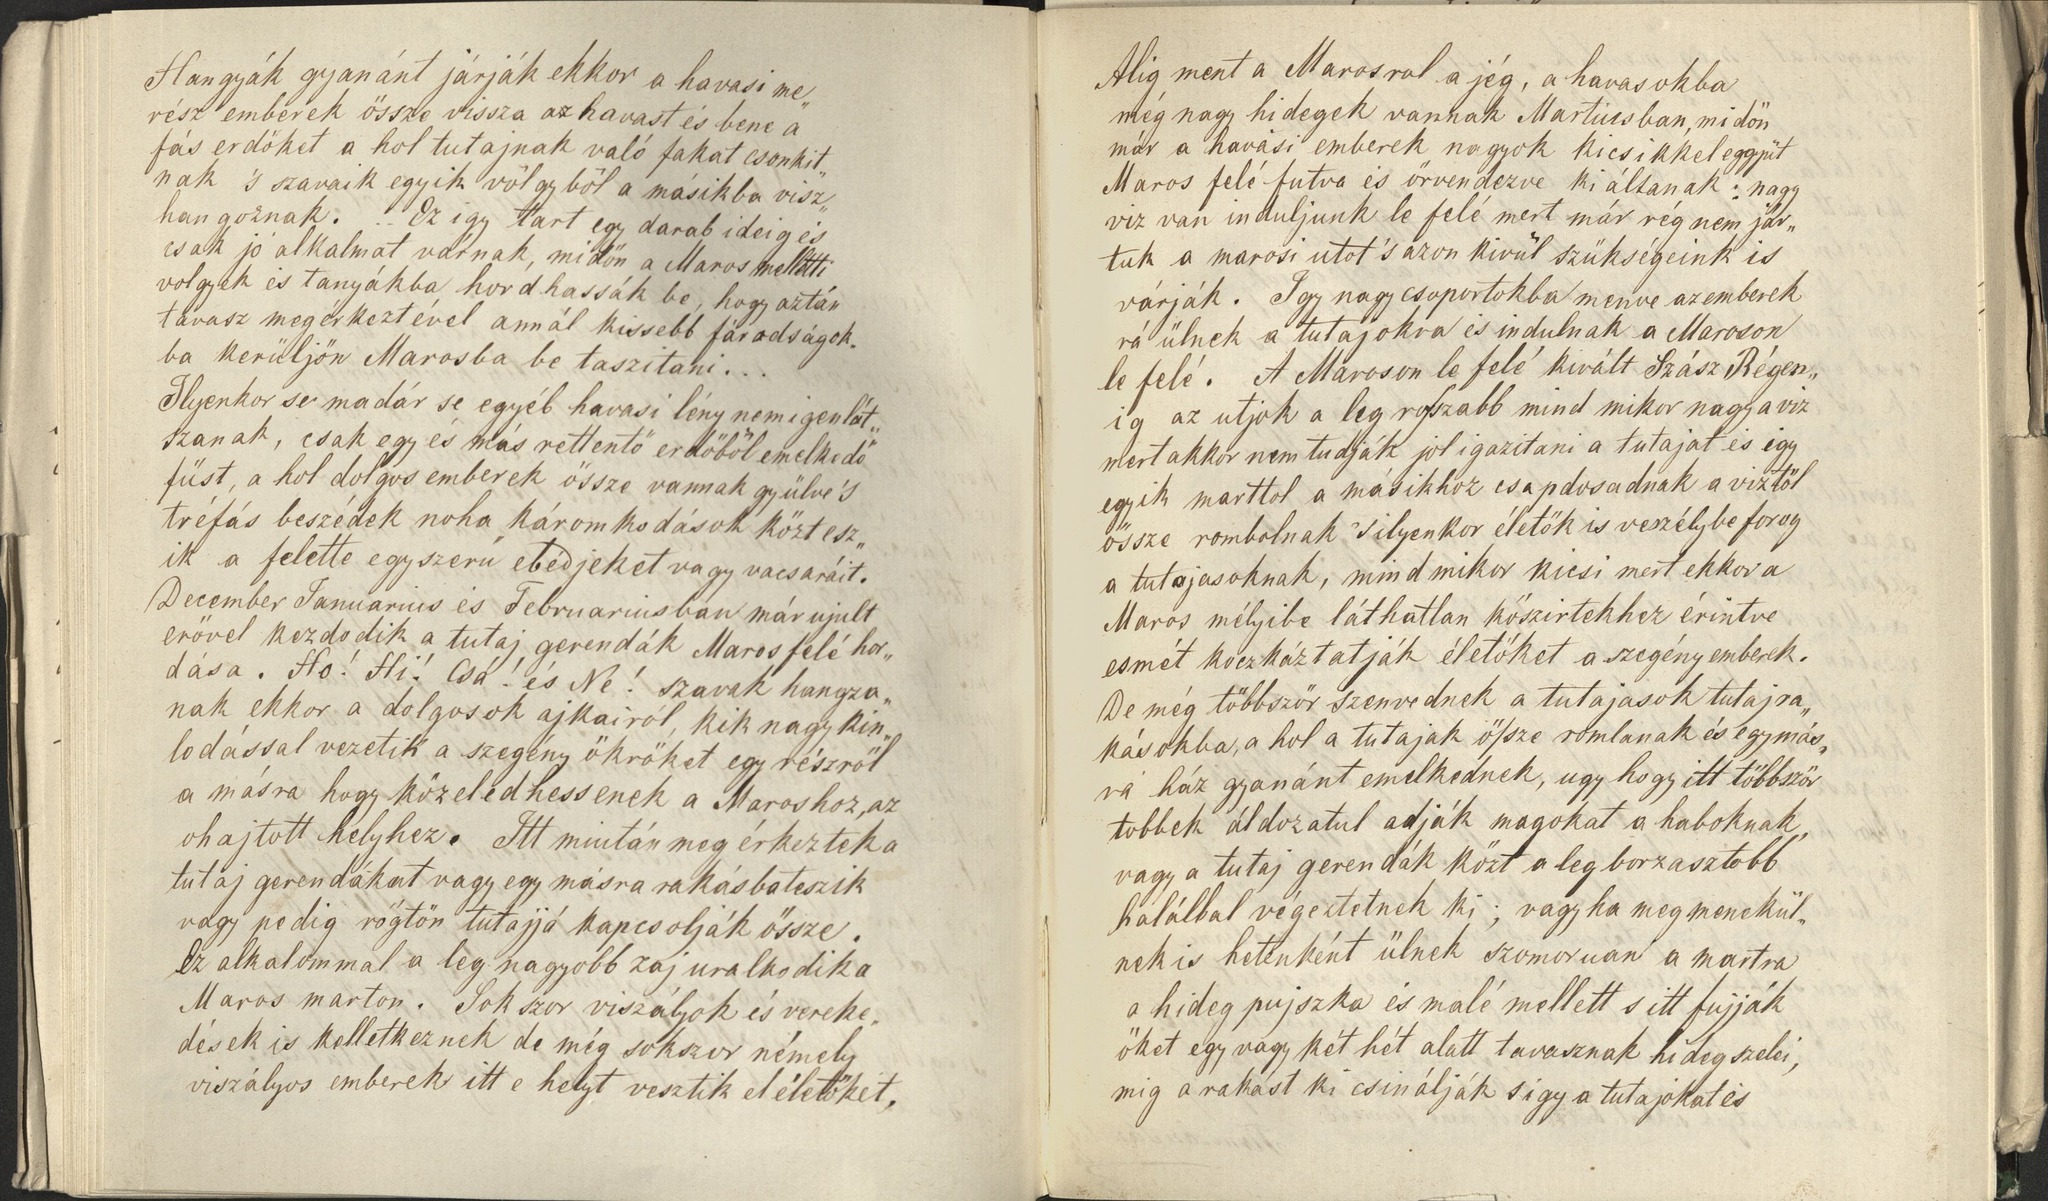 Hangyák gyanánt járják ekkor a havasi me„
rész emberek össze vissza az havast és bene a
fás erdöket a hol tutajnak való fakat csonkit„
nak 's szavaik egyik völgyböl a másikba visz„
hangoznak. .. Ez igy tart egy darab ideig és
csak jó alkalmat várnak, midön a Maros melletti
volgyek és tanyákba hordhassák be, hogy aztán
tavasz megérkeztével annál kissebb fáradságok.
ba kerüljön Marosba be taszitani...
Ilyenkor se madár se egyéb havasi lény nem igen lát„
szanak, csak egy és más rettentö erdöböl emelkedö
füst, a hol dolgos emberek össze vannak gyülve 's
tréfás beszédek noha káromkodások közt esz„
ik a felette egyszerü ebédjeket vagy vacsaráit.
December Januarius és Februariusban már ujult
erövel kezdodik a tutaj gerendák Maros felé hor„
dása. Ho! Hi! Csá! és Ne! szavak hangza„
nak ekkor a dolgosok ajkairól, kik nagy kin„
lodással vezetik a szegény ökröket egy részröl
a másra hogy közeledhessenek a Maroshoz, az
ohajtott helyhez. Itt miután meg érkeztek a
tutaj gerendákat vagy egy másra rakásba teszik
vagy pedig rögtön tutajjá kapcsolják össze.
Ez alkalommal a leg nagyobb zaj uralkodik a
Maros marton. Sokszor viszályok és vereke„
dések is kelletkeznek de még sokszor némely
viszályos emberek itt e helyt vesztik el életöket.
Alig ment a Marosrol a jég, a havasokba
még nagy hidegek vannak Martiusban, midön
már a havasi emberek nagyok kicsikkel eggyüt
Maros felé futva és örvendezve kiáltanak: nagy
viz van induljunk le felé mert már rég nem jár„
tuk a marosi utot 's azon kivül szükségeink is
várják. Igy nagy csoportokba menve az emberek
rá ülnek a tutajokra és indulnak a Maroson
le felé. A Maroson le felé kivált Szász Régen„
ig az utjok a leg roszabb mind mikor nagy a viz
mert akkor nem tudják jol igazitani a tutajat és igy
egyik marttol a másikhoz csapdosadnak a viztöl
össze rombolnak 's ilyenkor életök is veszélybe forog
a tutajasoknak, mind mikor kicsi mert ekkor a
Maros mélyibe láthatlan köszirtekhez érintve
esmét koczkáztatják életöket a szegény emberek.
De még többször szenvednek a tutajasok tutajra„
kásokba, a hol a tutajak össze romlanak és egymás„
rá ház gyanánt emelkednek, ugy hogy itt többször
tobbek áldozatul adják magokat a haboknak,
vagy a tutaj gerendák közt a leg borzasztobb
halállal végeztetnek ki; vagy ha meg menekül„
nek is hetenként ülnek szomoruan a martra
a hideg pujszka és malé mellett s itt fujják
öket egy vagy két hét alatt tavasznak hideg szelei,
mig a rakást ki csinálják s igy a tutajokat és